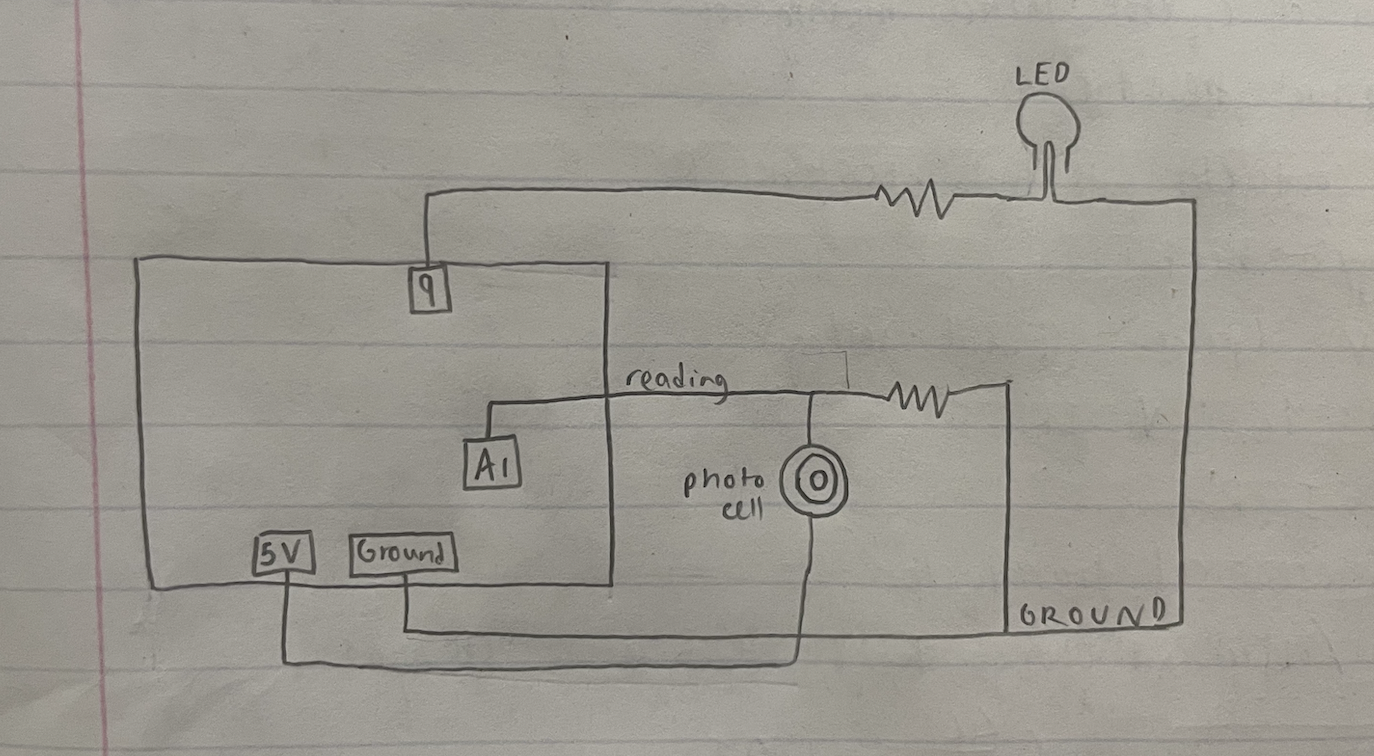 LED
9
reading
A1
photo
cell
5V
Ground
GROUND